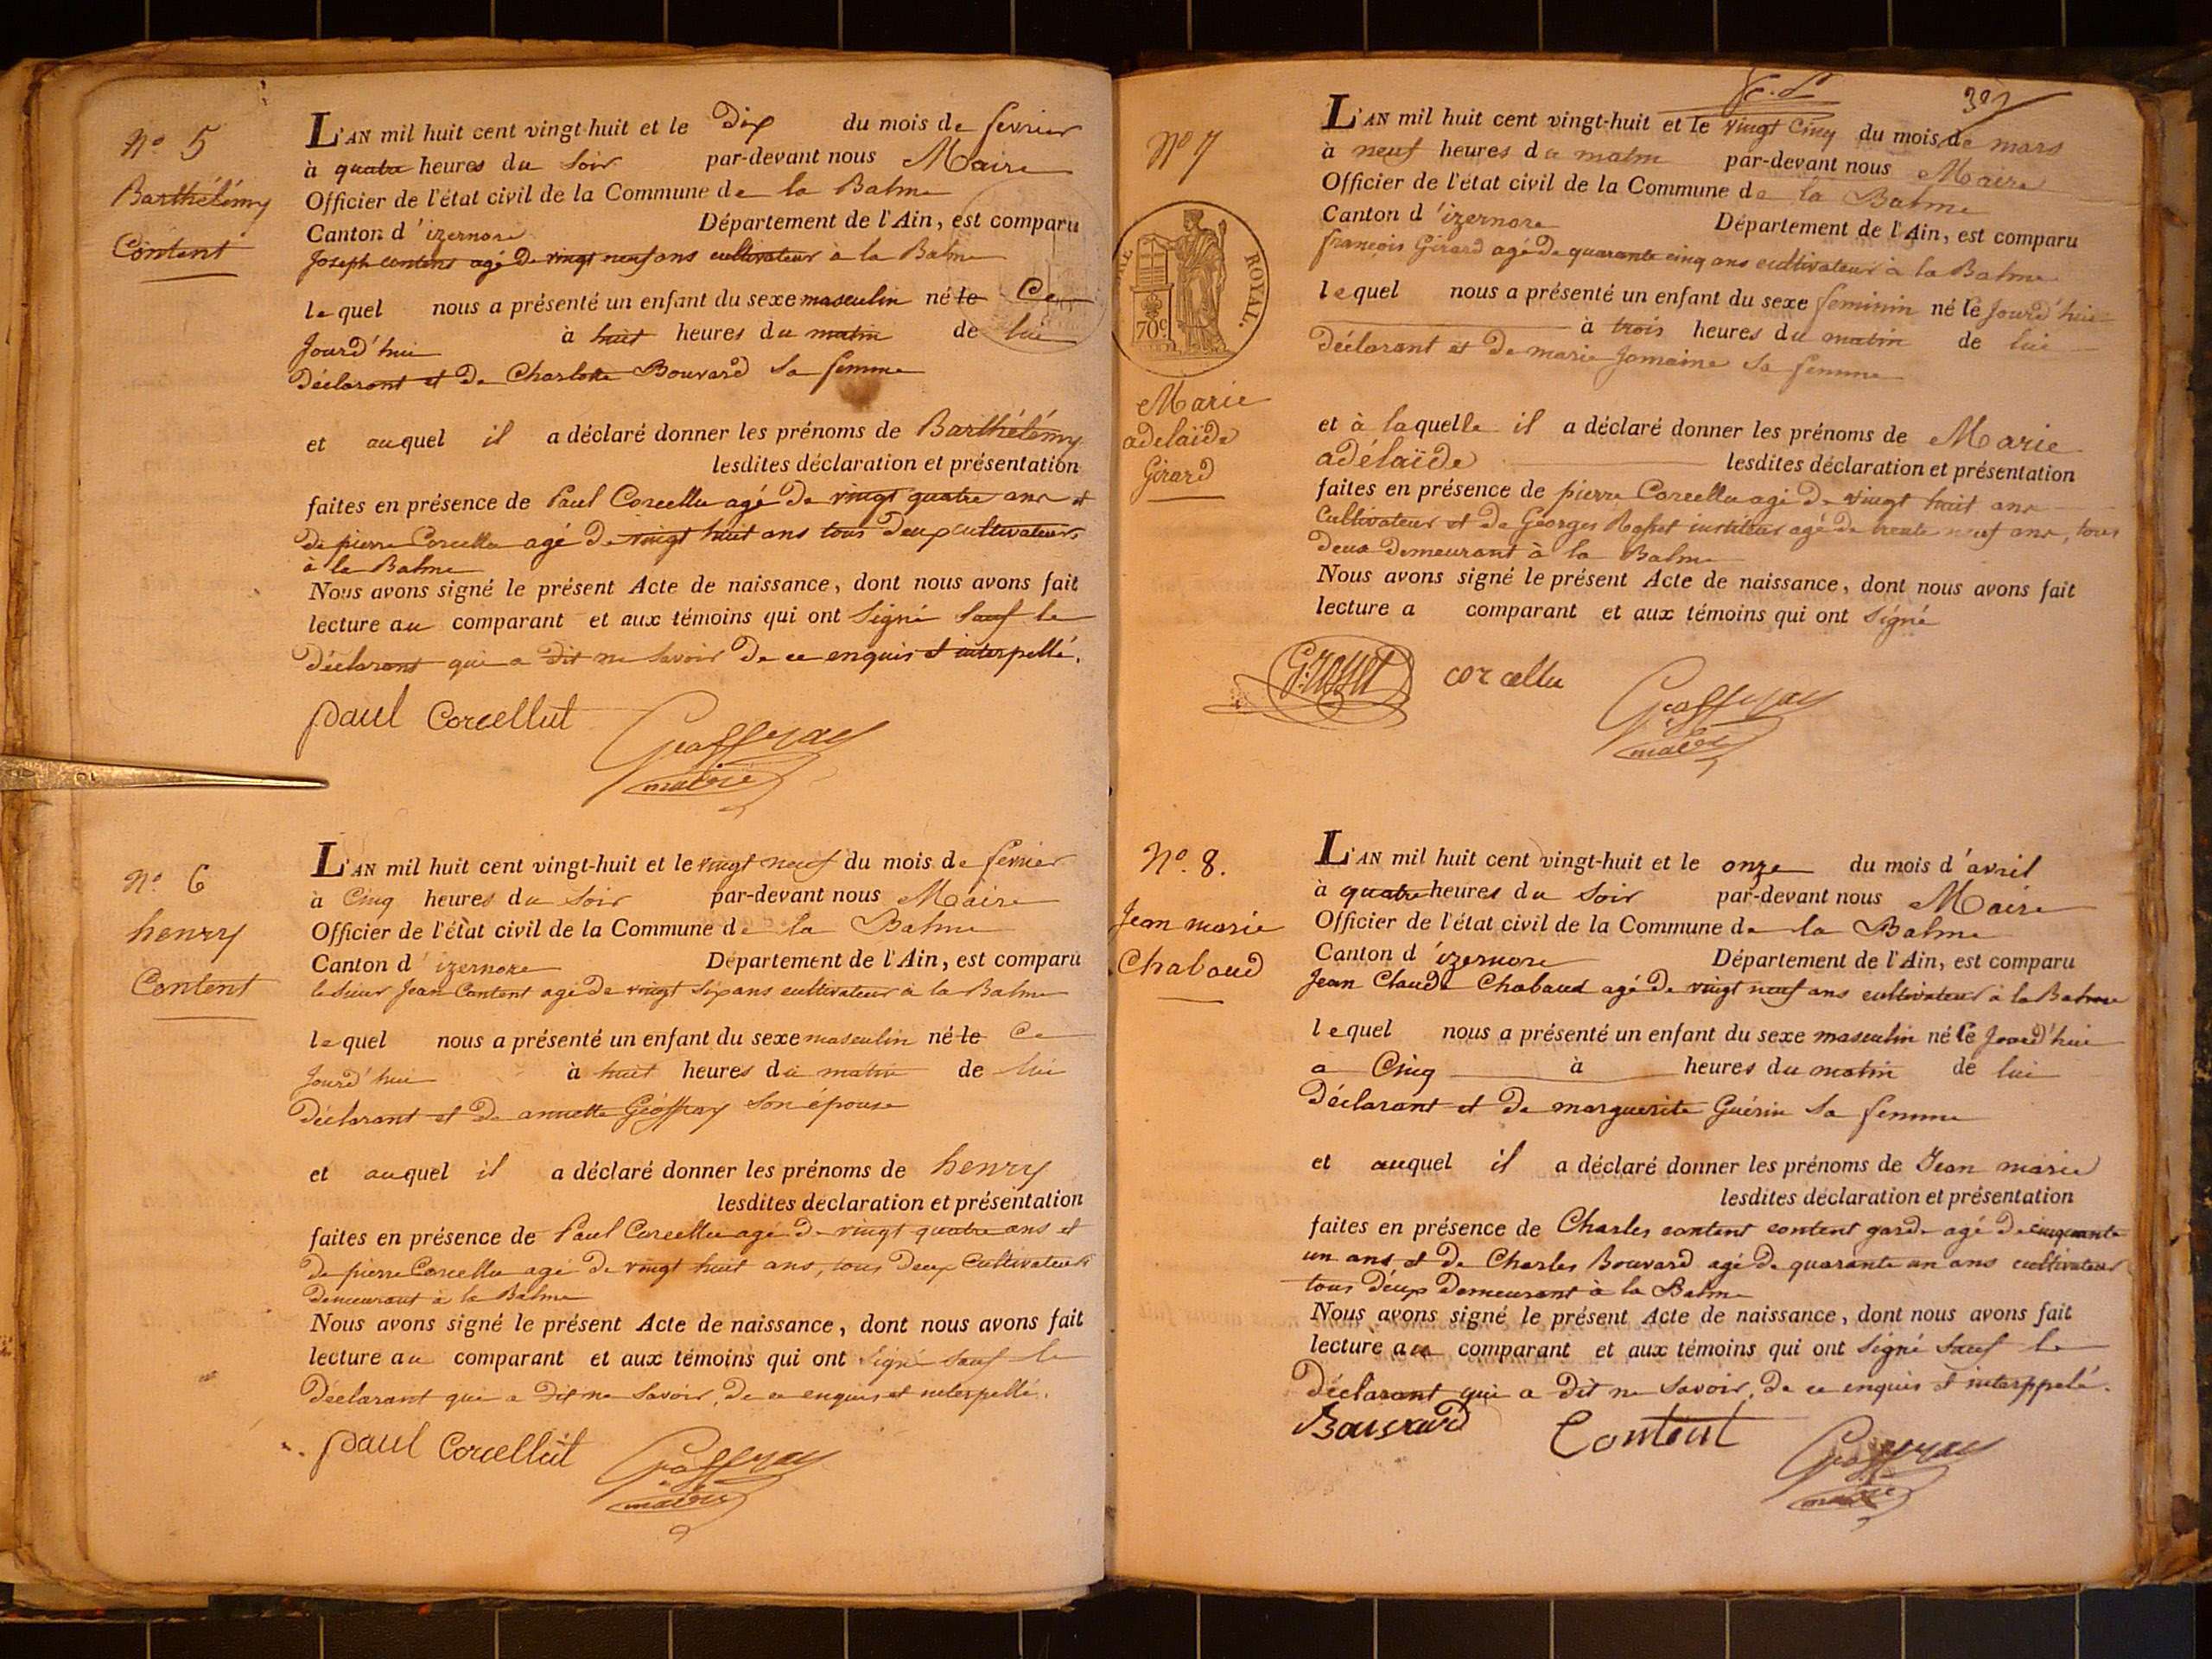 Nº 5
Barthélémy
Content
L'AN mil huit cent vingt-huit et le Dix du mois de fevrier
à quatre heures du Soir par-devant nous Maire
Officier de l'état civil de la Commune de la Balme
Canton d'izernore Département de l'Ain, est comparu
Joseph content agé De vingt neuf ans cultivateur à la Balme
lequel nous a présenté un enfant du sexe masculin né le Ce
Jourd'hui à huit heures du matin de lui
Déclarant et De Charlotte Bouvard Sa femme
et auquel il a déclaré donner les prénoms de Barthélémy
lesdites déclaration et présentation
faites en présence de Paul Corcellu agé De vingt quatre ans et
De pierre Corcellu agé De vingt huit ans tous Deux cultivateurs
à la Balme
Nous avons signé le présent Acte de naissance, dont nous avons fait
lecture au comparant et aux témoins qui ont Signé Sauf le
Déclarant qui a Dit ne Savoir De ce enquis et interpellé.
paul Corcellut Geoffray
maire
Nº 6
henry
Content
L'AN mil huit cent vingt-huit et le vingt neuf du mois de fevrier
à Cinq heures du Soir par-devant nous Maire
Officier de l'état civil de la Commune de la Balme
Canton d'izernore Département de l'Ain, est comparu
le Sieur Jean Content agé De vingt Six ans cultivateur à la Balme
lequel nous a présenté un enfant du sexe masculin né le Ce
Jourd'hui à huit heures du matin de lui
Déclarant et De annette Géoffray Son épouse
et auquel il a déclaré donner les prénoms de henry
lesdites déclaration et présentation
faites en présence de Paul Corcellu agé De vingt quatre ans et
De pierre Corcellu agé De vingt huit ans, tous Deux Cultivateurs
Demeurant à la Balme
Nous avons signé le présent Acte de naissance, dont nous avons fait
lecture au comparant et aux témoins qui ont Signé Sauf le
Déclarant qui a Dit ne Savoir, De ce enquis et interpellé.
paul Corcellut Geoffray
maire
Nº 7
ROYAL.
70c
Marie
adelaïde
Girard
L'AN mil huit cent vingt-huit et le vingt Cinq du mois de mars
à neuf heures du matin par-devant nous Maire
Officier de l'état civil de la Commune de la Balme
Canton d'izernore Département de l'Ain, est comparu
françois Girard agé De quarante cinq ans cultivateur à la Balme
lequel nous a présenté un enfant du sexe feminin né le Jourd'hui
à trois heures du matin de lui
Déclarant et De marie Jomaine Sa femme
et à laquelle il a déclaré donner les prénoms de Marie
adélaïde lesdites déclaration et présentation
faites en présence de pierre Corcellu agé De vingt huit ans
Cultivateur et De Georges Rosset instituteur agé De trente neuf ans, tous
Deux Demeurant à la Balme
Nous avons signé le présent Acte de naissance, dont nous avons fait
lecture a comparant et aux témoins qui ont Signé
G. rosset corcellu Geoffray
maire
Nº. 8.
Jean marie
Chabaud
L'AN mil huit cent vingt-huit et le onze du mois d'avril
à quatre heures du Soir par-devant nous Maire
Officier de l'état civil de la Commune de la Balme
Canton d'izernore Département de l'Ain, est comparu
Jean Claude Chabaud agé De vingt neuf ans cultivateur à la Balme
lequel nous a présenté un enfant du sexe masculin né le Jourd'hui
a Cinq à heures du matin de lui
Déclarant et De marguerite Guérin Sa femme
et auquel il a déclaré donner les prénoms de Jean marie
lesdites déclaration et présentation
faites en présence de Charles content content garde agé De cinquante
un ans et De Charles Bouvard agé De quarante un ans cultivateur
tous Deux Demeurant à la Balme
Nous avons signé le présent Acte de naissance, dont nous avons fait
lecture au comparant et aux témoins qui ont Signé Sauf le
Déclarant qui a Dit ne Savoir, De ce enquis et interppelé.
Bouvard Content Geoffray
maire